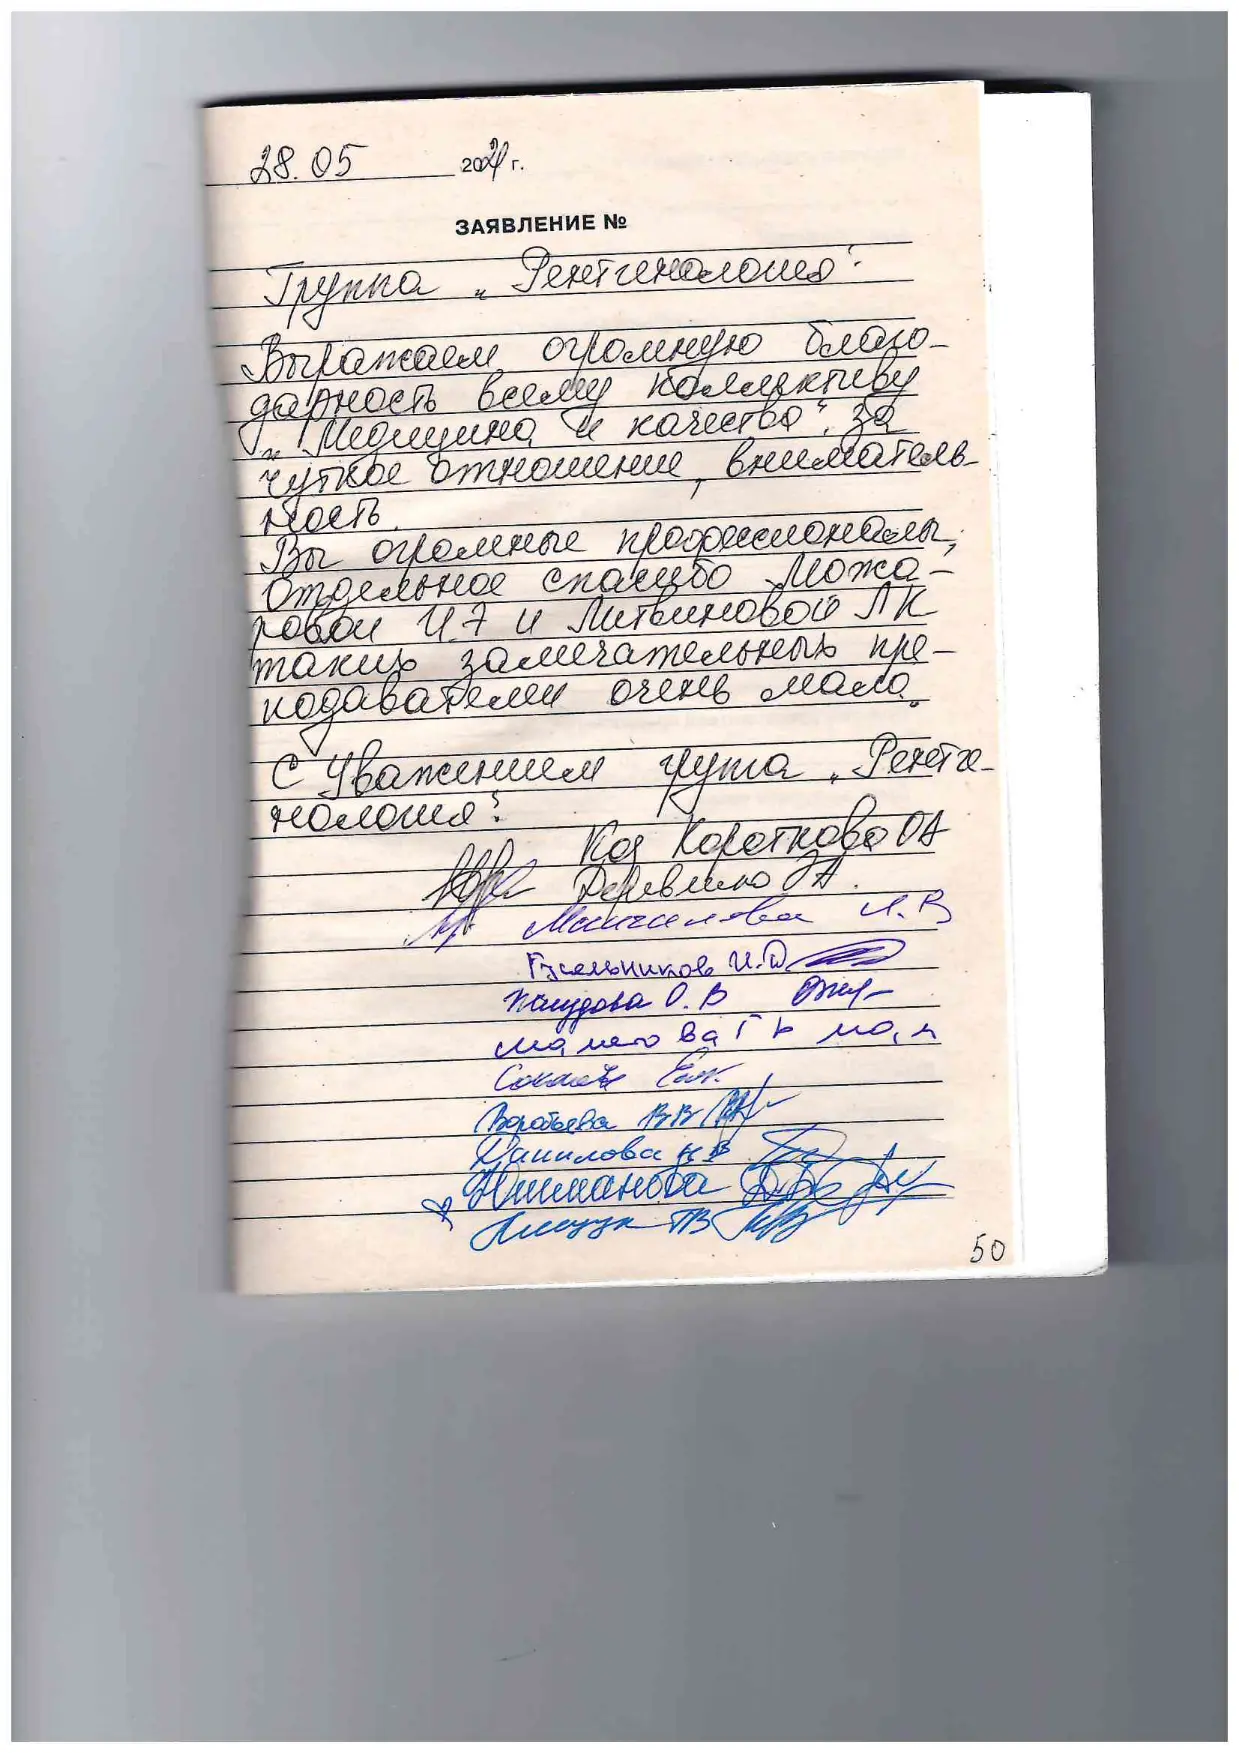 28.05 2021 г.
ЗАЯВЛЕНИЕ №
Группа „Рентгенология".
Выражаем огромную благо-
дарность всему коллективу
„Медицина и качество", за
чуткое отношение, вниматель-
ность.
Вы огромные профессионалы,
отдельное спасибо Можа-
ровой И.Г и Литвиновой Л К
таких замечательных пре-
подавателей очень мало.
С Уважением группа „Рентге-
нология".
Короткова ОА
Деревянко А
Л.В
Гусельников И.Ю
О.В
Воробьева ВВ
Данилова НВ
Нишанова
Пищук ТВ
50